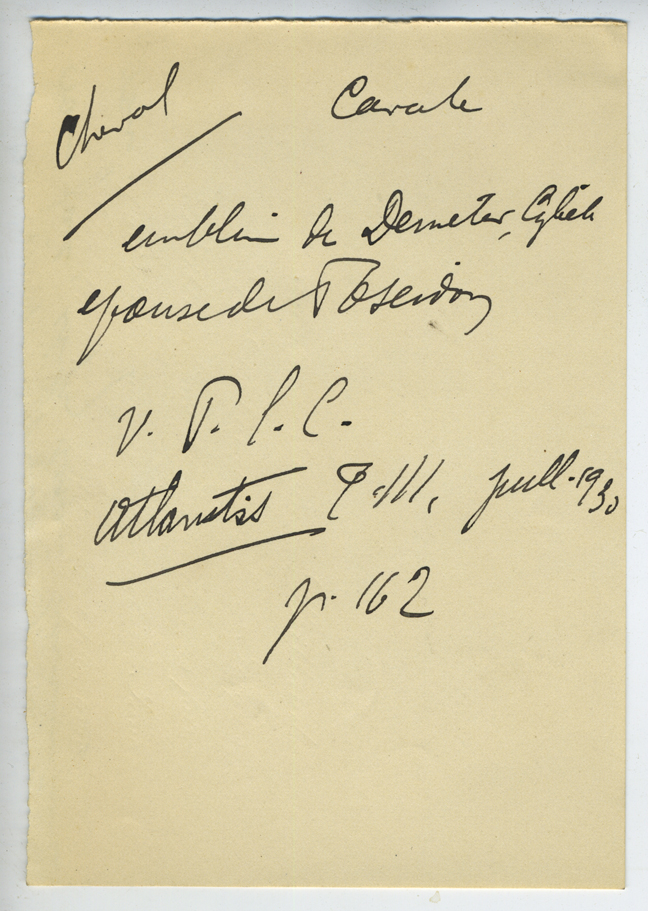 Cheval Cavale
emblème de Demeter, Cybèle
épouse de Poseidon
v. P. l. C.
Atlantis T. III, juill. 1930
p. 162